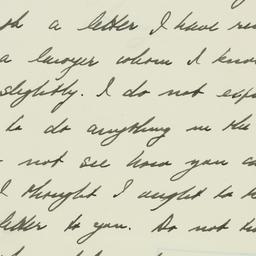 a letter I have
a lawyer whom I know
slightly. I do not
to do anything in the
not see how you
I thought I ought to
letter to you. Do not